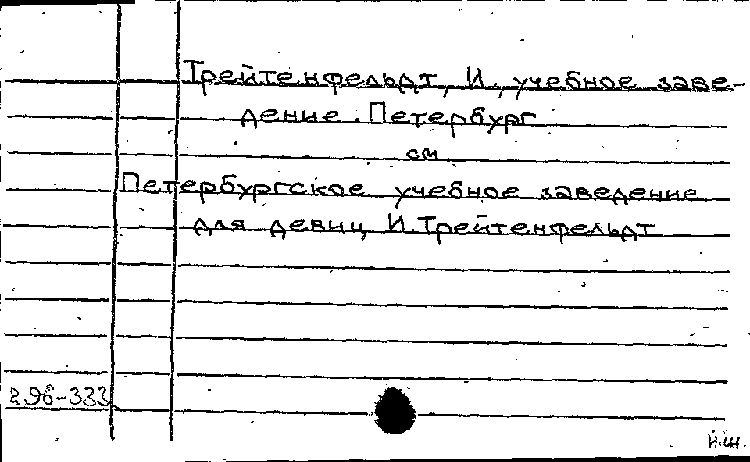 Трейтенфельдт, И., учебное заве-
дение. Петербург
см
Петербургское учебное заведение
для девиц И. Трейтенфельдт
и.ш.